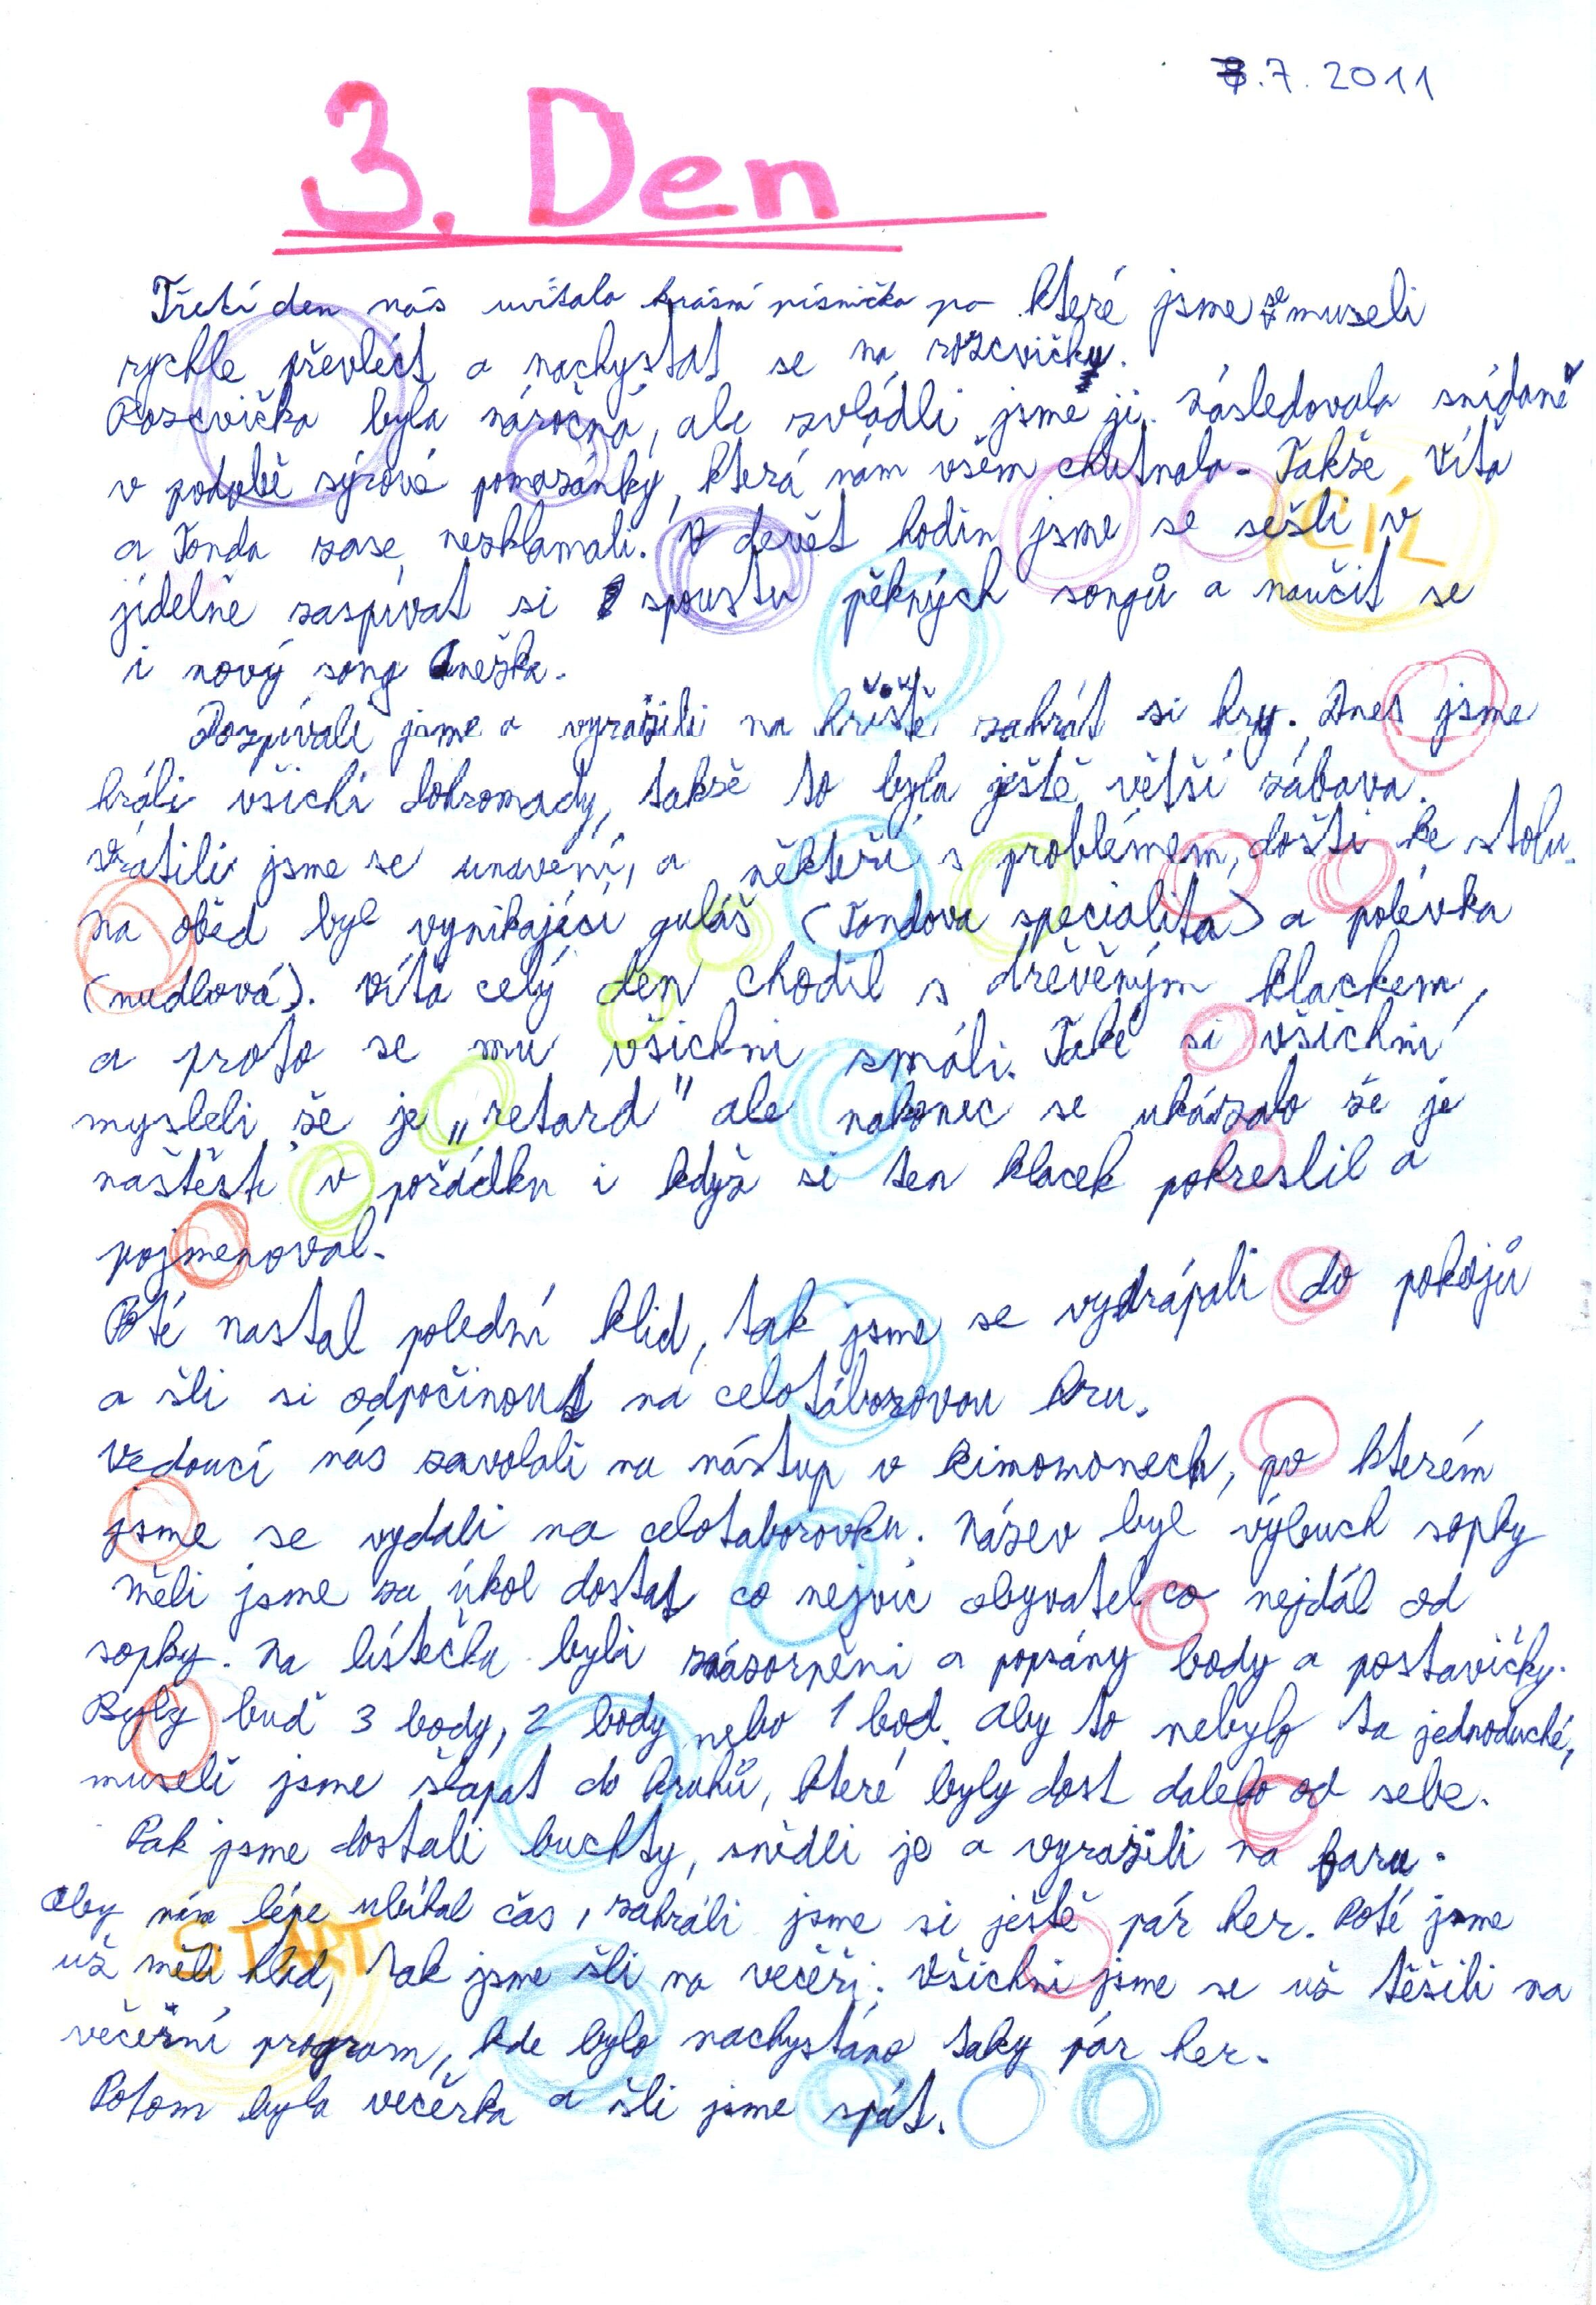 .7.2011
3. Den
Třetí den nás uvítala krásná písnička po které jsme se museli
rychle převléct a nachystat se na rozcvičku.
Rozcvička byla náročná, ale zvládli jsme ji. Následovala snídaně
v podobě sýrové pomazánky, která nám všem chutnala. Takže Víťa
a Tonda zase nezklamali. V devět hodin jsme se sešli v
CÍL
jídelně zaspívat si spoustu pěkných songů a naučit se
i nový song Anežka.
Dozpívali jsme a vyrazili na hřiště zahrát si hry. Dnes jsme
hráli všichi dohromady, takže to byla ještě větší zábava.
Vrátili jsme se unavení, a někteří s problémem, došli ke stolu.
Na oběd byl vynikající guláš (Tondova specialita) a polévka
(nudlová). Víťa celý den chodil s dřěvěným klackem,
a proto se mu všichni smáli. Také si všichni
mysleli že je „retard" ale nakonec se ukázalo že je
naštěstí v pořádku i když si ten klacek pokreslil a
pojmenoval.
Poté nastal polední klid, tak jsme se vydrápali do pokojů
a šli si odpočinout na celotáborovou hru.
Vedoucí nás zavolali na nástup v kimomonech, po kterém
jsme se vydali na celotaborovku. Název byl výbuch sopky
Měli jsme za úkol dostat co nejvíc obyvatel co nejdál od
sopky. Na lístečku byli znázorněni a popsány body a postavičky.
Byly buď 3 body, 2 body nebo 1 bod. Aby to nebylo ta jednoduché,
museli jsme šlapat do kruhů, které byly dost daleko od sebe.
Pak jsme dostali buchty, snědli je a vyrazili na faru.
Aby nám lépe ubíhal čas, zahráli jsme si ještě pár her. Poté jsme
START
už měli hlad, tak jsme šli na večeři. Všichni jsme se už těšili na
večerní program, kde bylo nachystáno taky pár her.
Potom byla večerka a šli jsme spát.